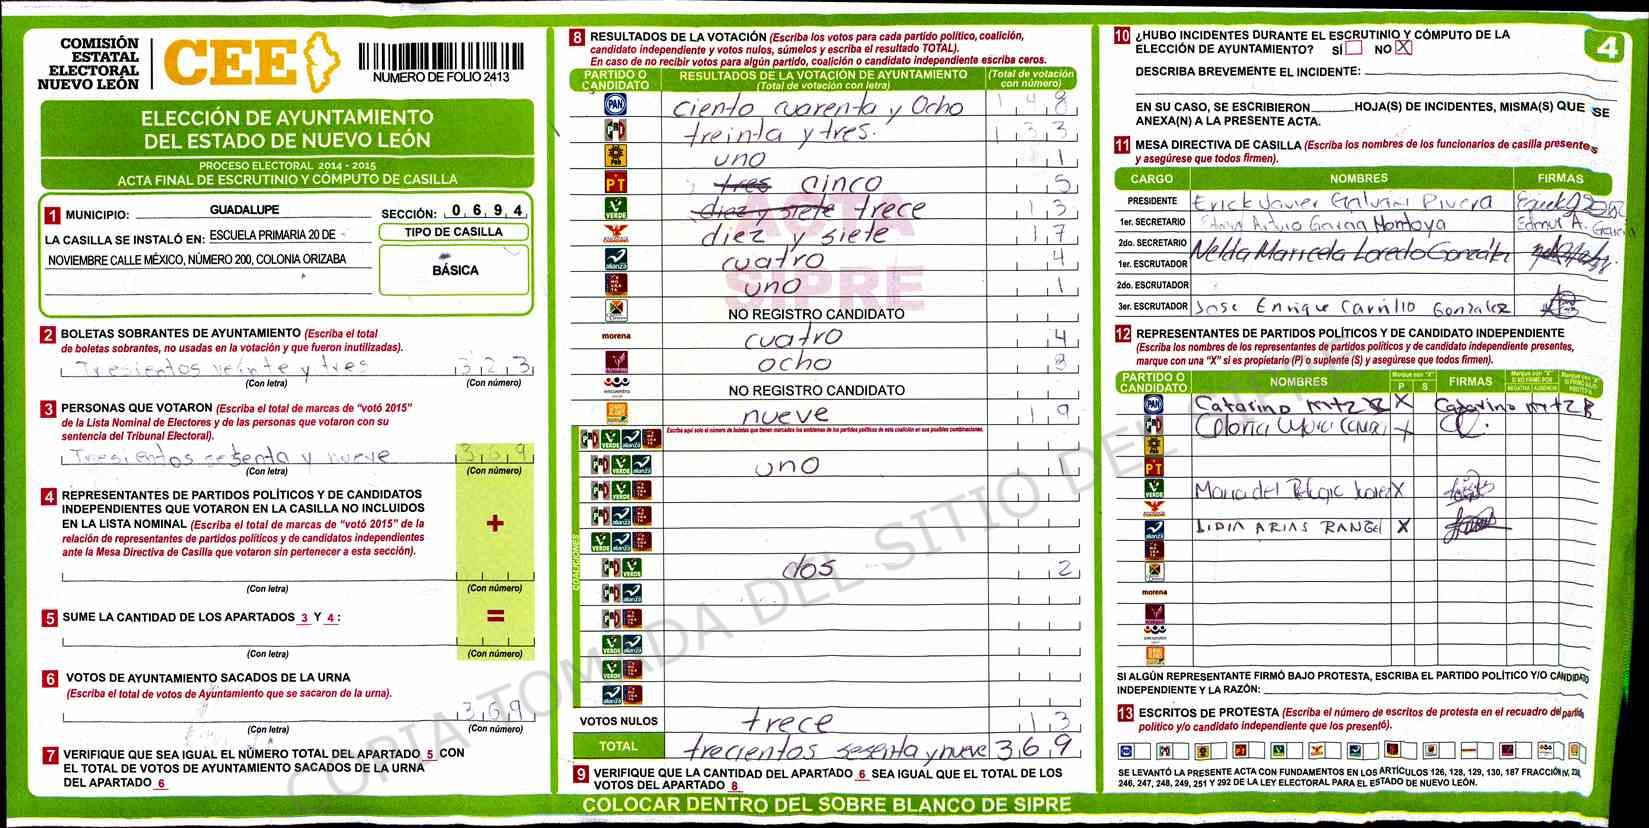 COMISIÓN
ESTATAL
ELECTORAL
NUEVO LEÓN
CEE
NUMERO DE FOLIO 2413
ELECCIÓN DE AYUNTAMIENTO
DEL ESTADO DE NUEVO LEÓN
PROCESO ELECTORAL 2014 - 2015
ACTA FINAL DE ESCRUTINIO Y CÓMPUTO DE CASILLA
1 MUNICIPIO: GUADALUPE SECCIÓN: 0 6 9 4
LA CASILLA SE INSTALÓ EN: ESCUELA PRIMARIA 20 DE
NOVIEMBRE CALLE MÉXICO, NÚMERO 200, COLONIA ORIZABA
TIPO DE CASILLA
BÁSICA
2 BOLETAS SOBRANTES DE AYUNTAMIENTO (Escriba el total
de boletas sobrantes, no usadas en la votación y que fueron inutilizadas).
Tresientos veinte y tres 3 2 3
(Con letra) (Con número)
3 PERSONAS QUE VOTARON (Escriba el total de marcas de "votó 2015"
de la Lista Nominal de Electores y de las personas que votaron con su
sentencia del Tribunal Electoral).
Tresientos sesenta y nueve 3 6 9
(Con letra) (Con número)
4 REPRESENTANTES DE PARTIDOS POLÍTICOS Y DE CANDIDATOS
INDEPENDIENTES QUE VOTARON EN LA CASILLA NO INCLUIDOS
EN LA LISTA NOMINAL (Escriba el total de marcas de "votó 2015" de la
relación de representantes de partidos políticos y de candidatos independientes
ante la Mesa Directiva de Casilla que votaron sin pertenecer a esta sección).
+
(Con letra) (Con número)
5 SUME LA CANTIDAD DE LOS APARTADOS 3 Y 4 :
=
(Con letra) (Con número)
6 VOTOS DE AYUNTAMIENTO SACADOS DE LA URNA
(Escriba el total de votos de Ayuntamiento que se sacaron de la urna).
3 6 9
(Con letra) (Con número)
7 VERIFIQUE QUE SEA IGUAL EL NÚMERO TOTAL DEL APARTADO 5 CON
EL TOTAL DE VOTOS DE AYUNTAMIENTO SACADOS DE LA URNA
DEL APARTADO 6
8 RESULTADOS DE LA VOTACIÓN (Escriba los votos para cada partido político, coalición,
candidato independiente y votos nulos, súmelos y escriba el resultado TOTAL).
En caso de no recibir votos para algún partido, coalición o candidato independiente escriba ceros.
PARTIDO O CANDIDATO
RESULTADOS DE LA VOTACIÓN DE AYUNTAMIENTO
(Total de votación con letra)
(Total de votación con número)
PAN ciento cuarenta y Ocho 1 4 8
PRD treinta y tres. 1 3 3
PRD uno 1
PT tres cinco 5
VERDE diez y siete trece 1 3
diez y siete 1 7
alianza cuatro 4
uno 1
NO REGISTRO CANDIDATO
morena cuatro 4
ocho 8
encuentro NO REGISTRO CANDIDATO
nueve 1 9
Escriba aquí solo el número de boletas que tienen marcados los emblemas de los partidos políticos de esta coalición en sus posibles combinaciones.
COALICIONES
uno 1
dos 2
VOTOS NULOS trece 1 3
TOTAL trecientos sesenta y nueve 3 6 9
9 VERIFIQUE QUE LA CANTIDAD DEL APARTADO 6 SEA IGUAL QUE EL TOTAL DE LOS
VOTOS DEL APARTADO 8
COLOCAR DENTRO DEL SOBRE BLANCO DE SIPRE
ACTA
SIPRE
COPIA TOMADA DEL SITIO DEL SIPRE
4
10 ¿HUBO INCIDENTES DURANTE EL ESCRUTINIO Y CÓMPUTO DE LA
ELECCIÓN DE AYUNTAMIENTO? SÍ NO X
DESCRIBA BREVEMENTE EL INCIDENTE:
EN SU CASO, SE ESCRIBIERON HOJA(S) DE INCIDENTES, MISMA(S) QUE SE
ANEXA(N) A LA PRESENTE ACTA.
11 MESA DIRECTIVA DE CASILLA (Escriba los nombres de los funcionarios de casilla presentes
y asegúrese que todos firmen).
CARGO NOMBRES FIRMAS
PRESIDENTE Erick Javier Galvani Rivera
1er. SECRETARIO Edmur Arturo Garcia Montoya Edmur A. Garcia
2do. SECRETARIO Nelda Maricela Loredo González
1er. ESCRUTADOR
2do. ESCRUTADOR
3er. ESCRUTADOR Jose Enrique Carrillo Gonzalez
12 REPRESENTANTES DE PARTIDOS POLÍTICOS Y DE CANDIDATO INDEPENDIENTE
(Escriba los nombres de los representantes de partidos políticos y de candidato independiente presentes,
marque con una "X" si es propietario (P) o suplente (S) y asegúrese que todos firmen).
PARTIDO O CANDIDATO NOMBRES Marque con "X" P S FIRMAS
PAN Catarino Mtz R X Catarino Mtz R
PT
VERDE Maria del Refugio Juarez X
alianza LIDIA ARIAS RANGEL X
morena
SI ALGÚN REPRESENTANTE FIRMÓ BAJO PROTESTA, ESCRIBA EL PARTIDO POLÍTICO Y/O CANDIDATO
INDEPENDIENTE Y LA RAZÓN:
13 ESCRITOS DE PROTESTA (Escriba el número de escritos de protesta en el recuadro del partido
político y/o candidato independiente que los presentó).
SE LEVANTÓ LA PRESENTE ACTA CON FUNDAMENTOS EN LOS ARTÍCULOS 126, 128, 129, 130, 187 FRACCIÓN IV, 238,
246, 247, 248, 249, 251 Y 292 DE LA LEY ELECTORAL PARA EL ESTADO DE NUEVO LEÓN.